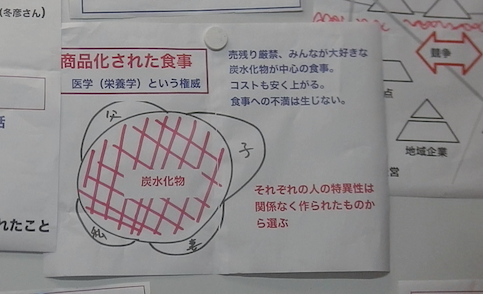 (冬彦さん)
商品化された食事
医学(栄養学)という権威
売残り厳禁、みんなが大好きな
炭水化物が中心の食事。
コストも安く上がる。
食事への不満は生じない。
父
子
炭水化物
私
妻
それぞれの人の特異性は
関係なく作られたものか
ら選ぶ
競争
点
地域企業
営
話
れたこと